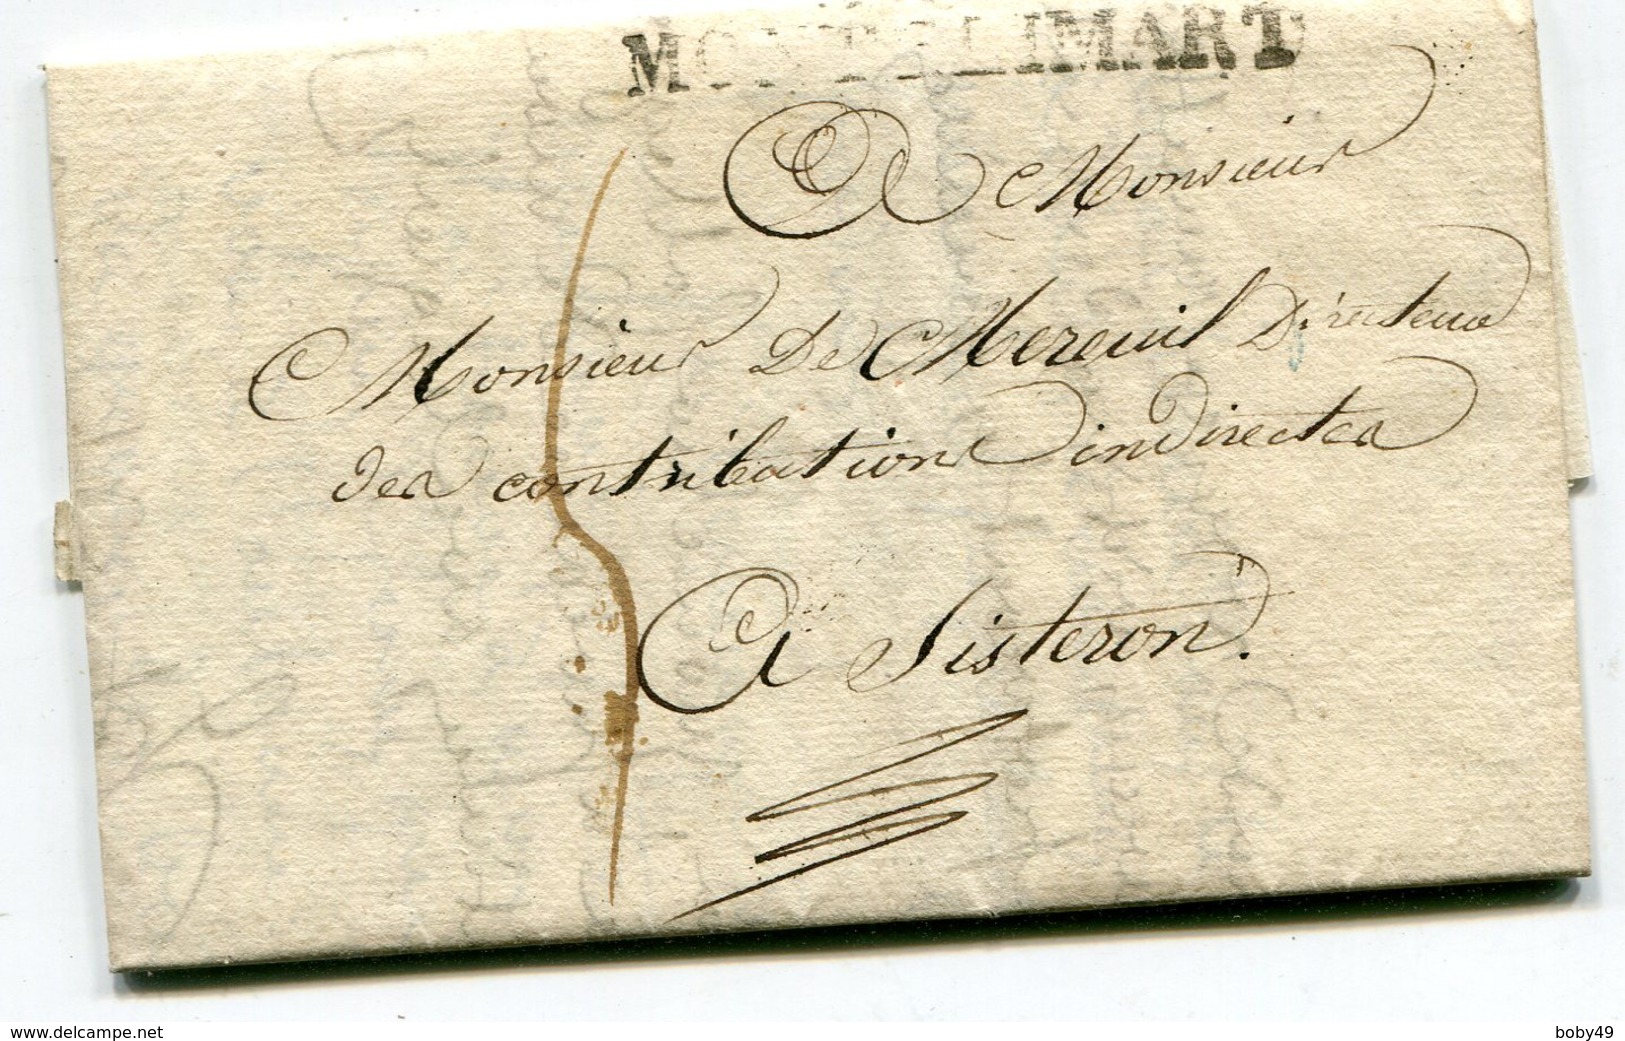 MONTELIMART
A Monsieur
Monsieur De Mereuil Directeur
des contributions indirectes
A Sisteron.
www.delcampe.net
boby49